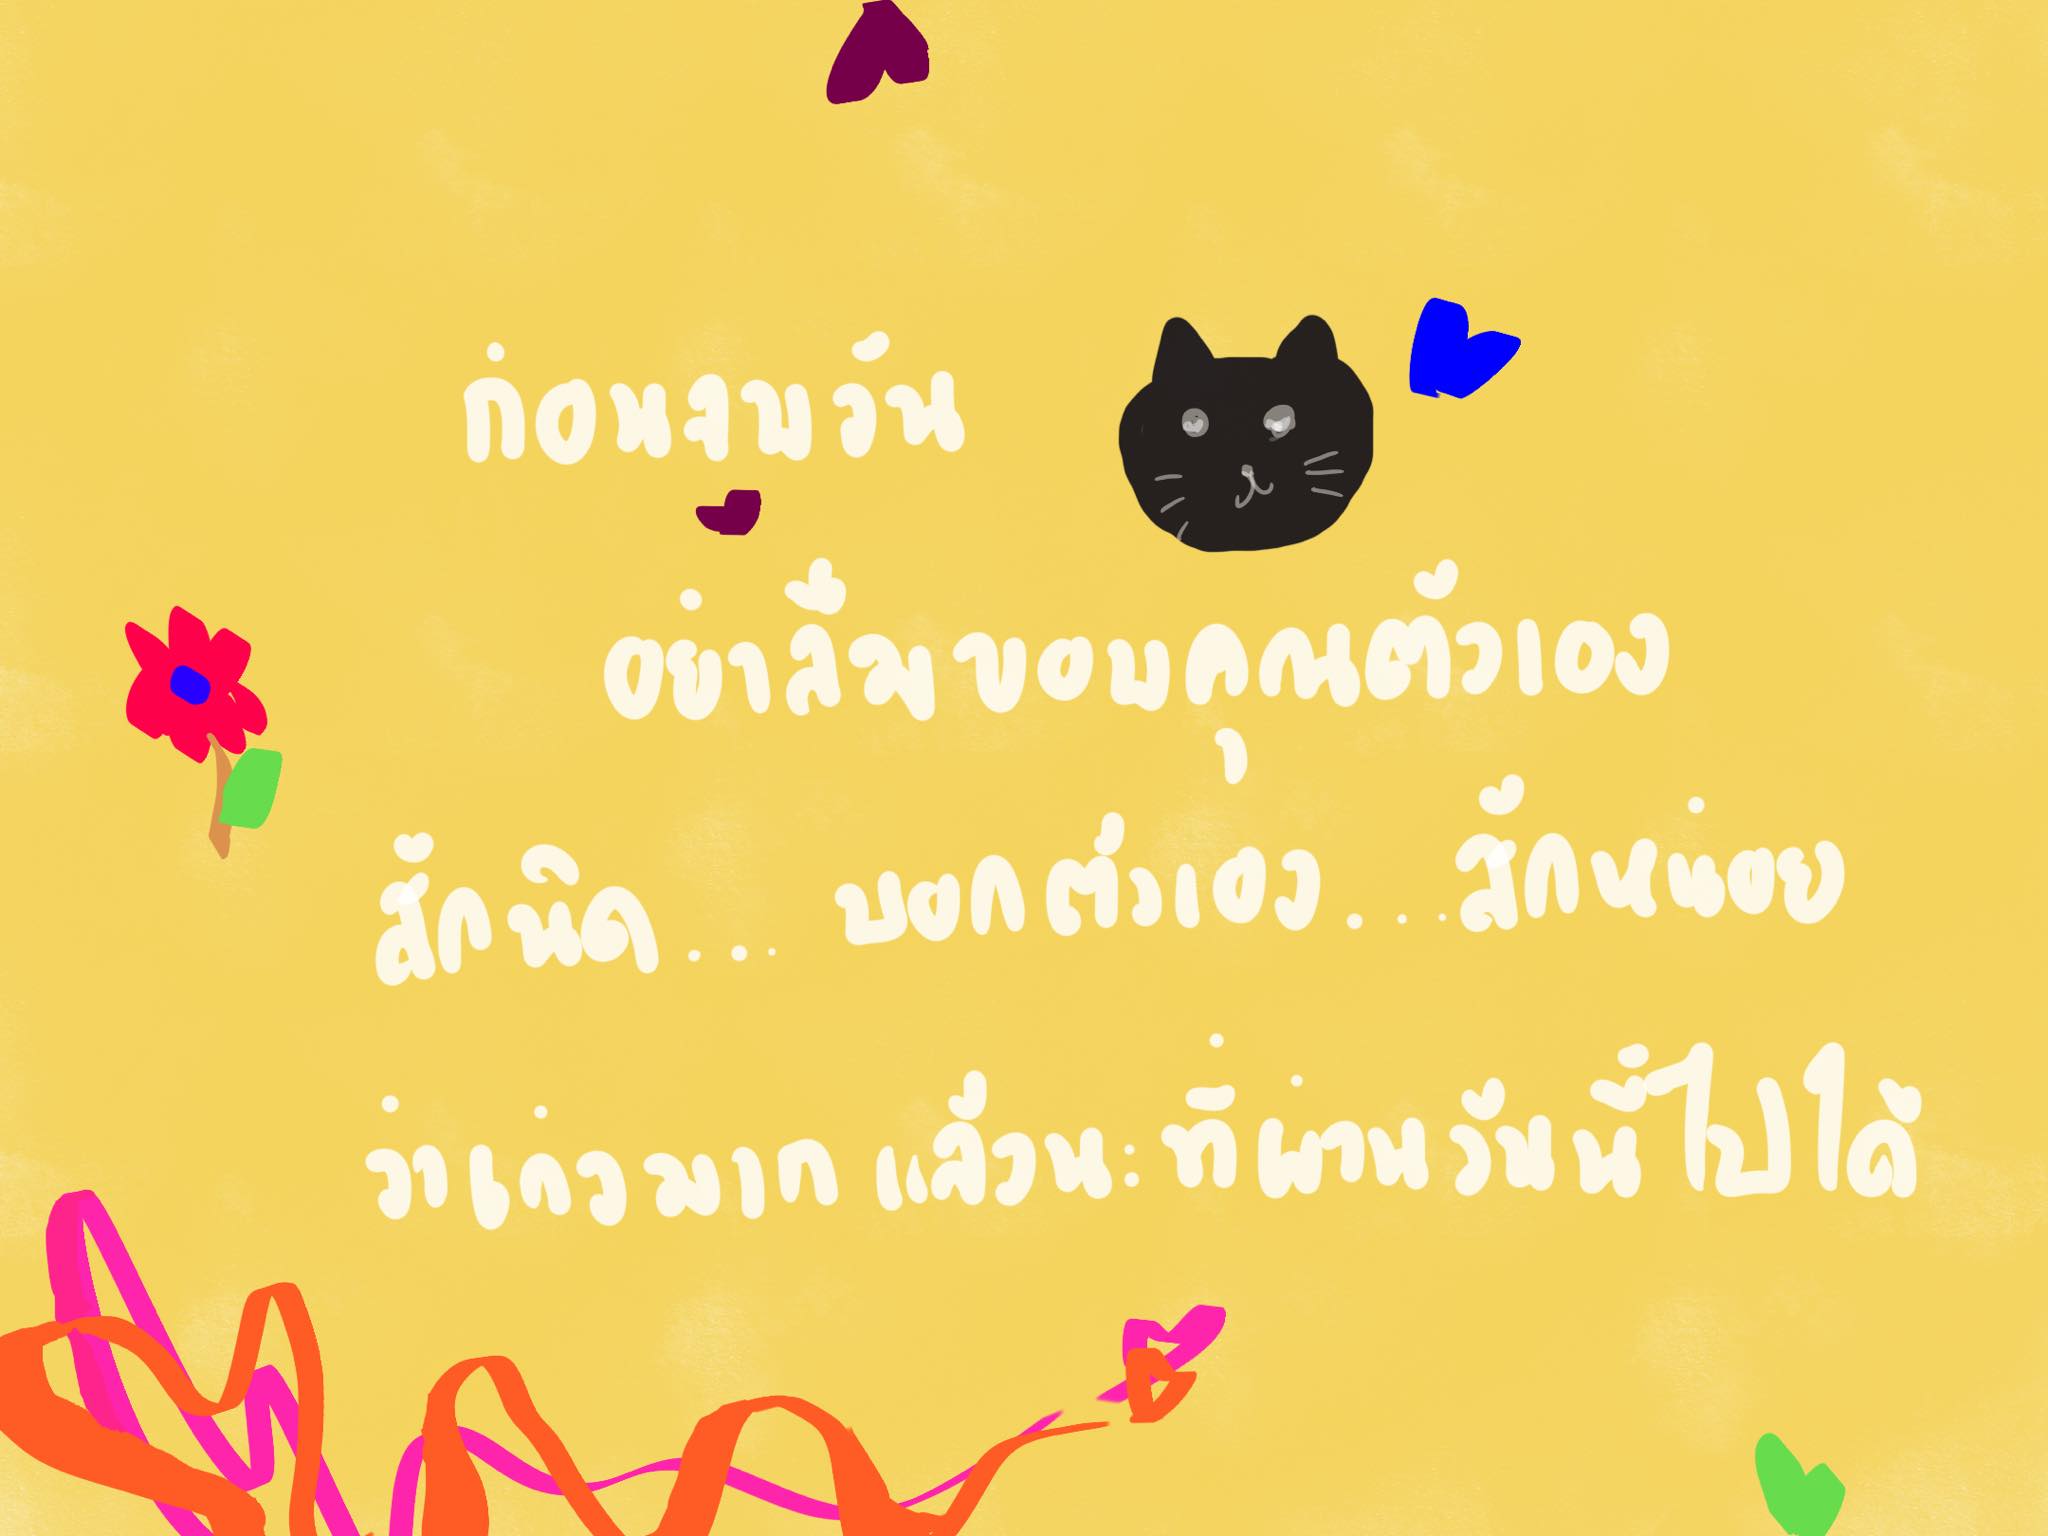 ก่อนจบวัน
อย่าลืมขอบคุณตัวเอง
สักนิด... บอกตัวเอง...สักหน่อย
ว่าเก่งมาก แล้วนะที่ผ่านวันนี้ไปได้